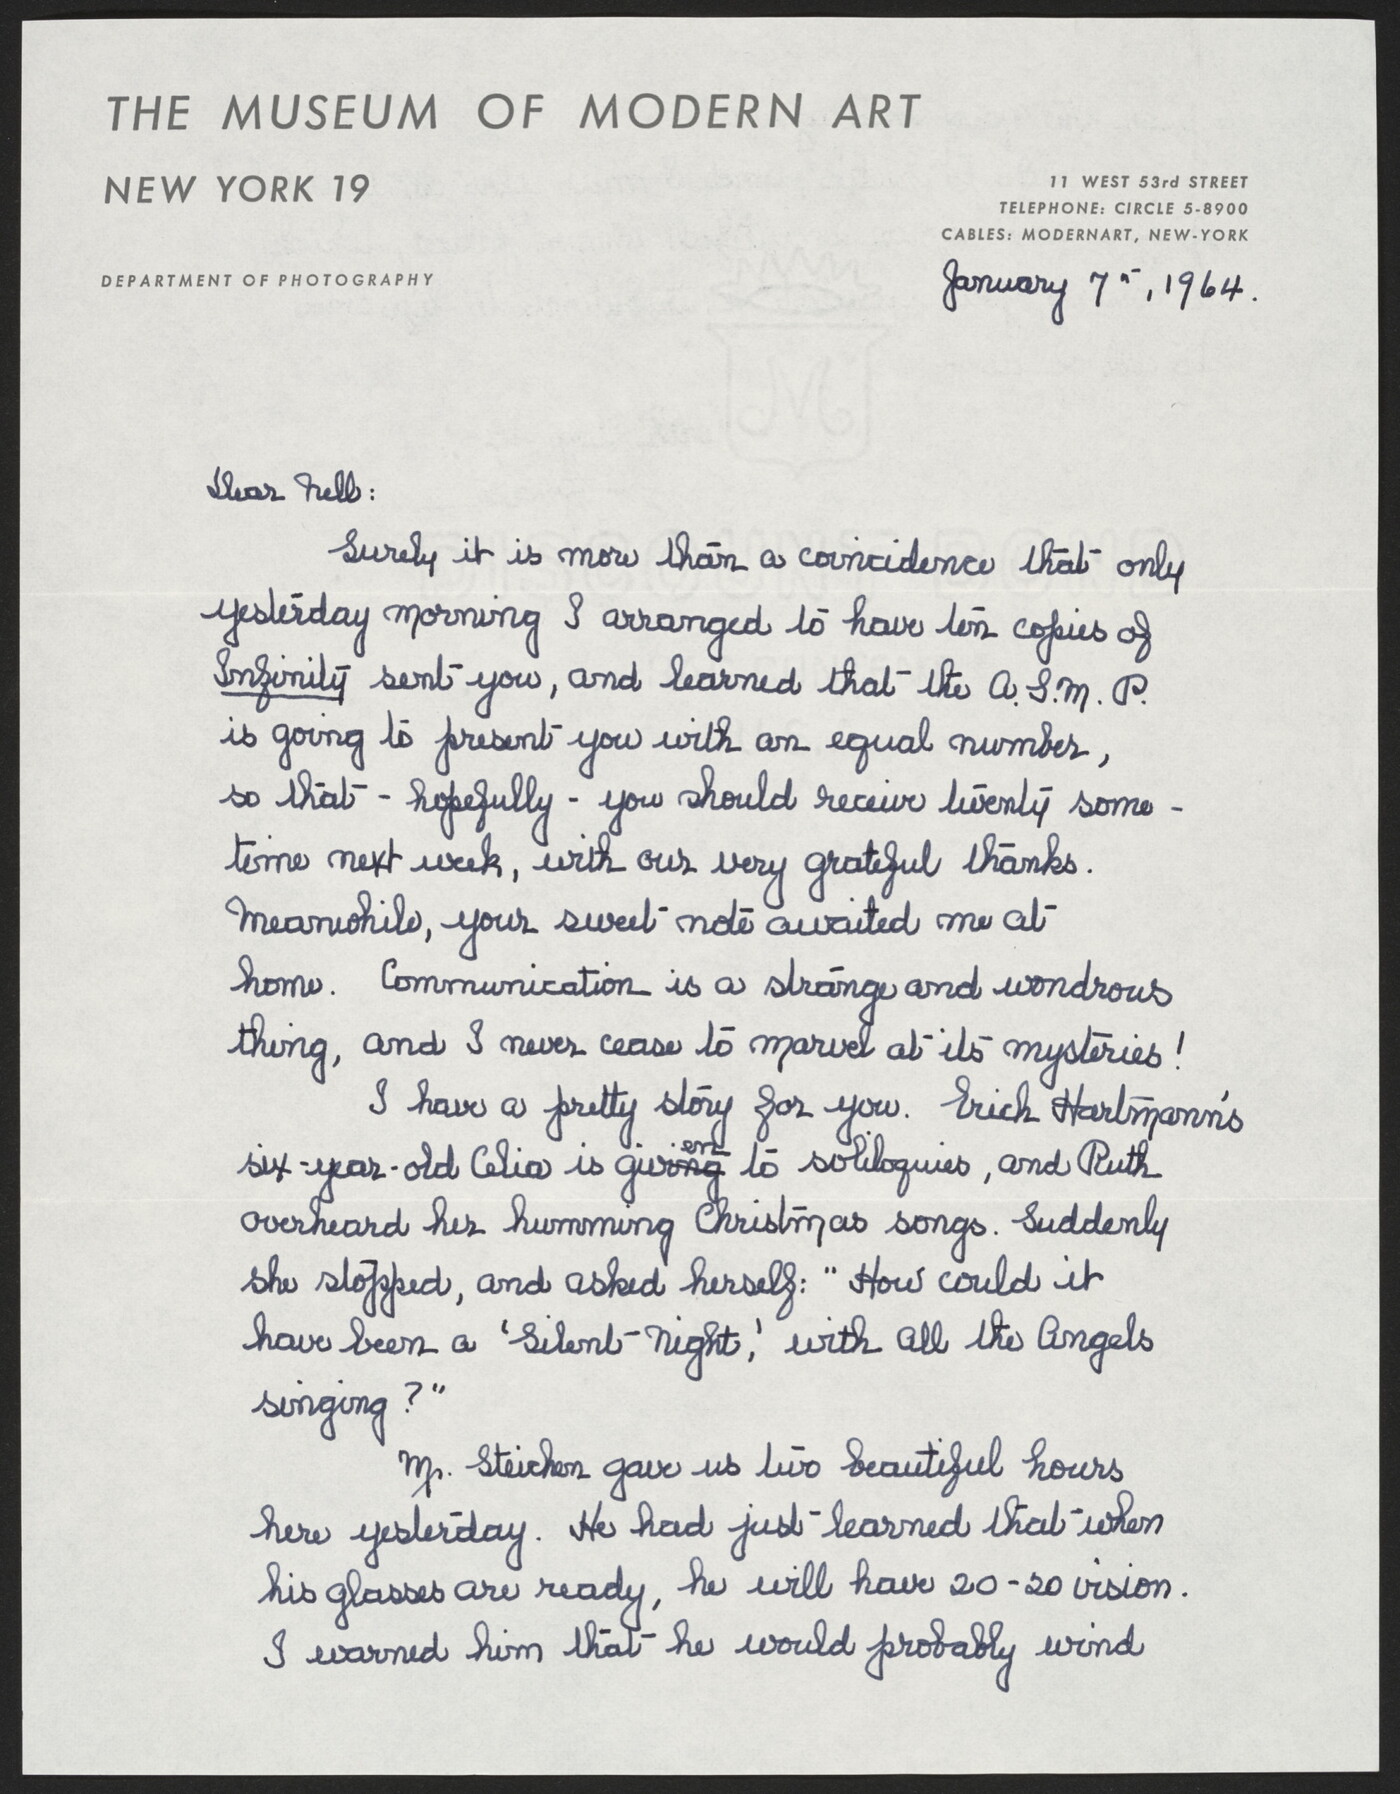 THE MUSEUM OF MODERN ART
NEW YORK 19
11 WEST 53rd STREET
TELEPHONE: CIRCLE 5-8900
CABLES: MODERNART, NEW-YORK
DEPARTMENT OF PHOTOGRAPHY
January 7th, 1964.
Dear Nell:
Surely it is more than a coincidence that only
yesterday morning I arranged to have ten copies of
Infinity sent you, and learned that the A.S.M.P.
is going to present you with an equal number,
so that - hopefully - you should receive twenty some-
time next week, with our very grateful thanks.
Meanwhile, your sweet note awaited me at
home. Communication is a strange and wondrous
thing, and I never cease to marvel at its mysteries!
I have a pretty story for you. Erich Hartmann's
six-year-old Celia is given to soliloquies, and Ruth
overheard her humming Christmas songs. Suddenly
she stopped, and asked herself: "How could it
have been a 'Silent Night,' with all the Angels
singing?"
Mr. Steichen gave us two beautiful hours
here yesterday. He had just learned that when
his glasses are ready, he will have 20-20 vision.
I warned him that he would probably wind